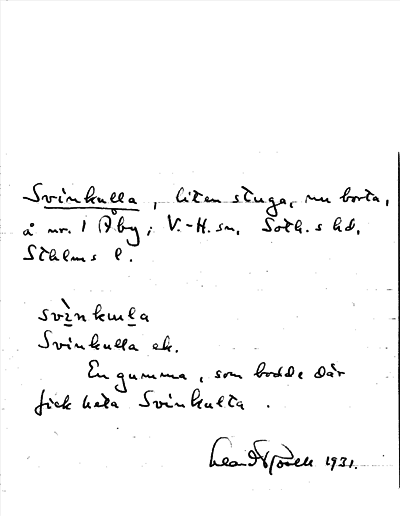 Svinkulla, liten stuga, nu borta,
å nr. 1 Åby, V.-H. sn, Soth.s hd,
Sthlms l.
Svinkulla ek.
En gumma, som bodde där
fick heta Svinkulla.
1931.